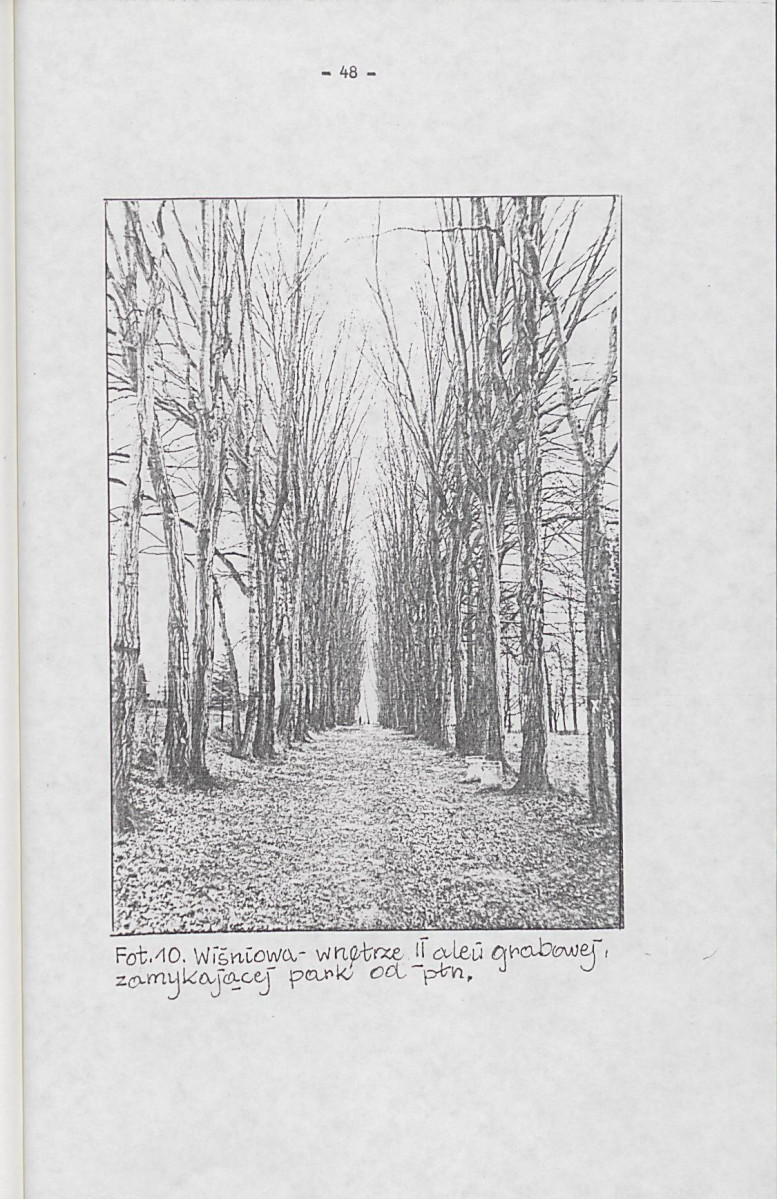 - 48 -
Fot.10. Wiśniowa- wnętrze II alei grabowej,
zamykającej park od płn.